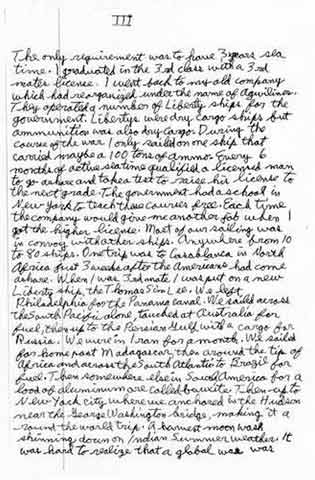 III
The only requirement was to have 3 years sea
time. I graduated in the 3rd class with a 3rd
mates license. I went back to my old company
which had reorganized under the name of Agwilines.
They operated a number of Liberty ships for the
government. Libertys were dry cargo ships but
ammunition was also dry cargo. During the
course of the war I only sailed on one ship that
carried maybe a 100 tons of ammo. Every 6
months of active seatime qualified a licensed man
to go ashore and take a test to raise his license to
the next grade. The government had a school in
New York to teach these courses free. Each time
the company would give me another job when I
got the higher license. Most of our sailing was
in convoy with other ships. Anywhere from 10
to 80 ships. One trip was to Casablanca in North
Africa just 3 weeks after the Americans had come
ashore. When I was 3rd mate I was put on a new
Liberty ship the Thomas Sim Lee. We left
Philadelphia for the Panama canal. We sailed across
the South Pacific alone, touched at Australia for
fuel, then up to the Persian Gulf with a cargo for
Russia. We were in Iran for a month. We sailed
for home past Madagascar then around the tip of
Africa and across the South Atlantic to Brazil for
fuel. Then somewhere else in South America for a
load of alumininum ore called bauxite. Then up to
New York city where we anchored in the Hudson
near the George Washington bridge, making it a
round the world trip. A harvest moon was
shinning down on Indian Summer weather. It
was hard to realize that a global war was